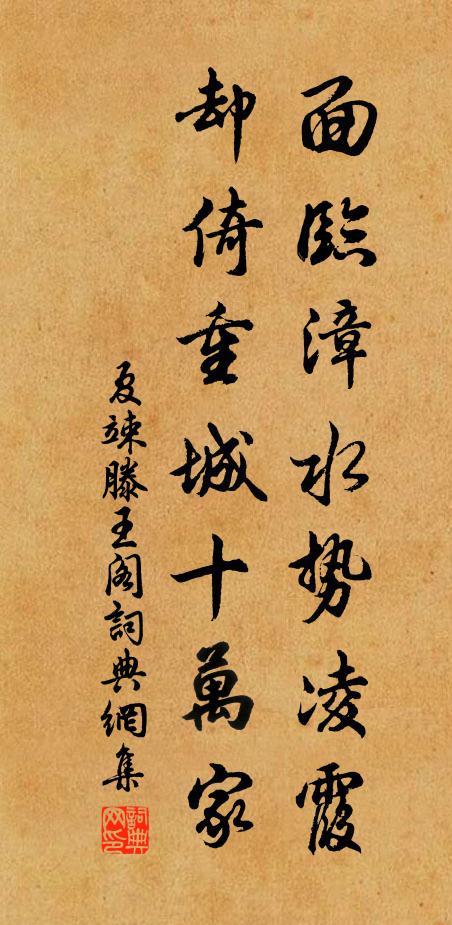 面臨漳水勢凌霞
却倚重城十萬家
夏竦滕王阁詞典網集
詞典网印